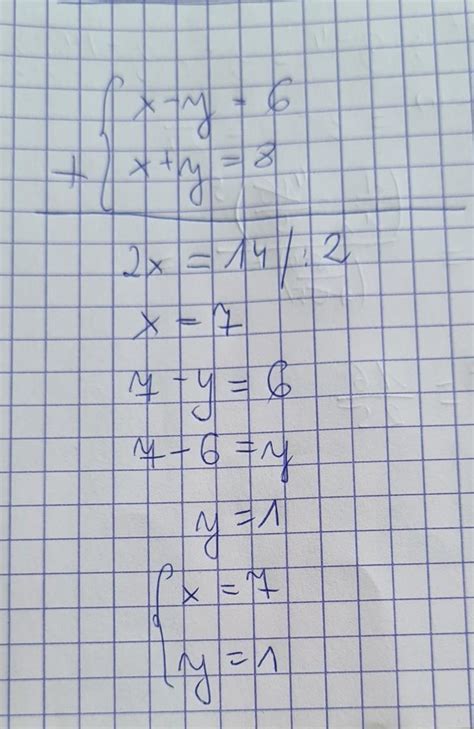 x - y = 6
+ x + y = 8
2x = 14 / : 2
x = 7
7 - y = 6
7 - 6 = y
y = 1
{ x = 7
y = 1